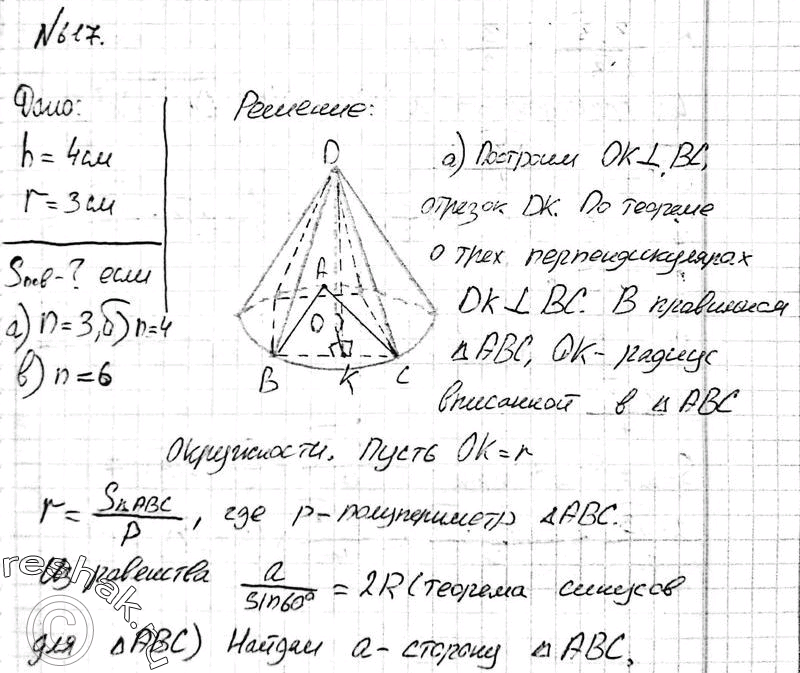 №617.
Дано:
h = 4см
r = 3см
Sпов-? если
а) n = 3, б) n = 4
в) n = 6
Решение:
D
A
O
B
K
C
а) Построим OK⊥BC,
отрезок DK. По теореме
о трех перпендикулярах
DK⊥BC. В правильном
△ABC, OK- радиус
вписанной в △ABC
окружности. Пусть OK = r
r = S△ABC / p, где p-полупериметр △ABC.
Из равенства a / sin60° = 2R (теорема синусов
для △ABC) Найдем a- сторону △ABC,
reshak.ru
©